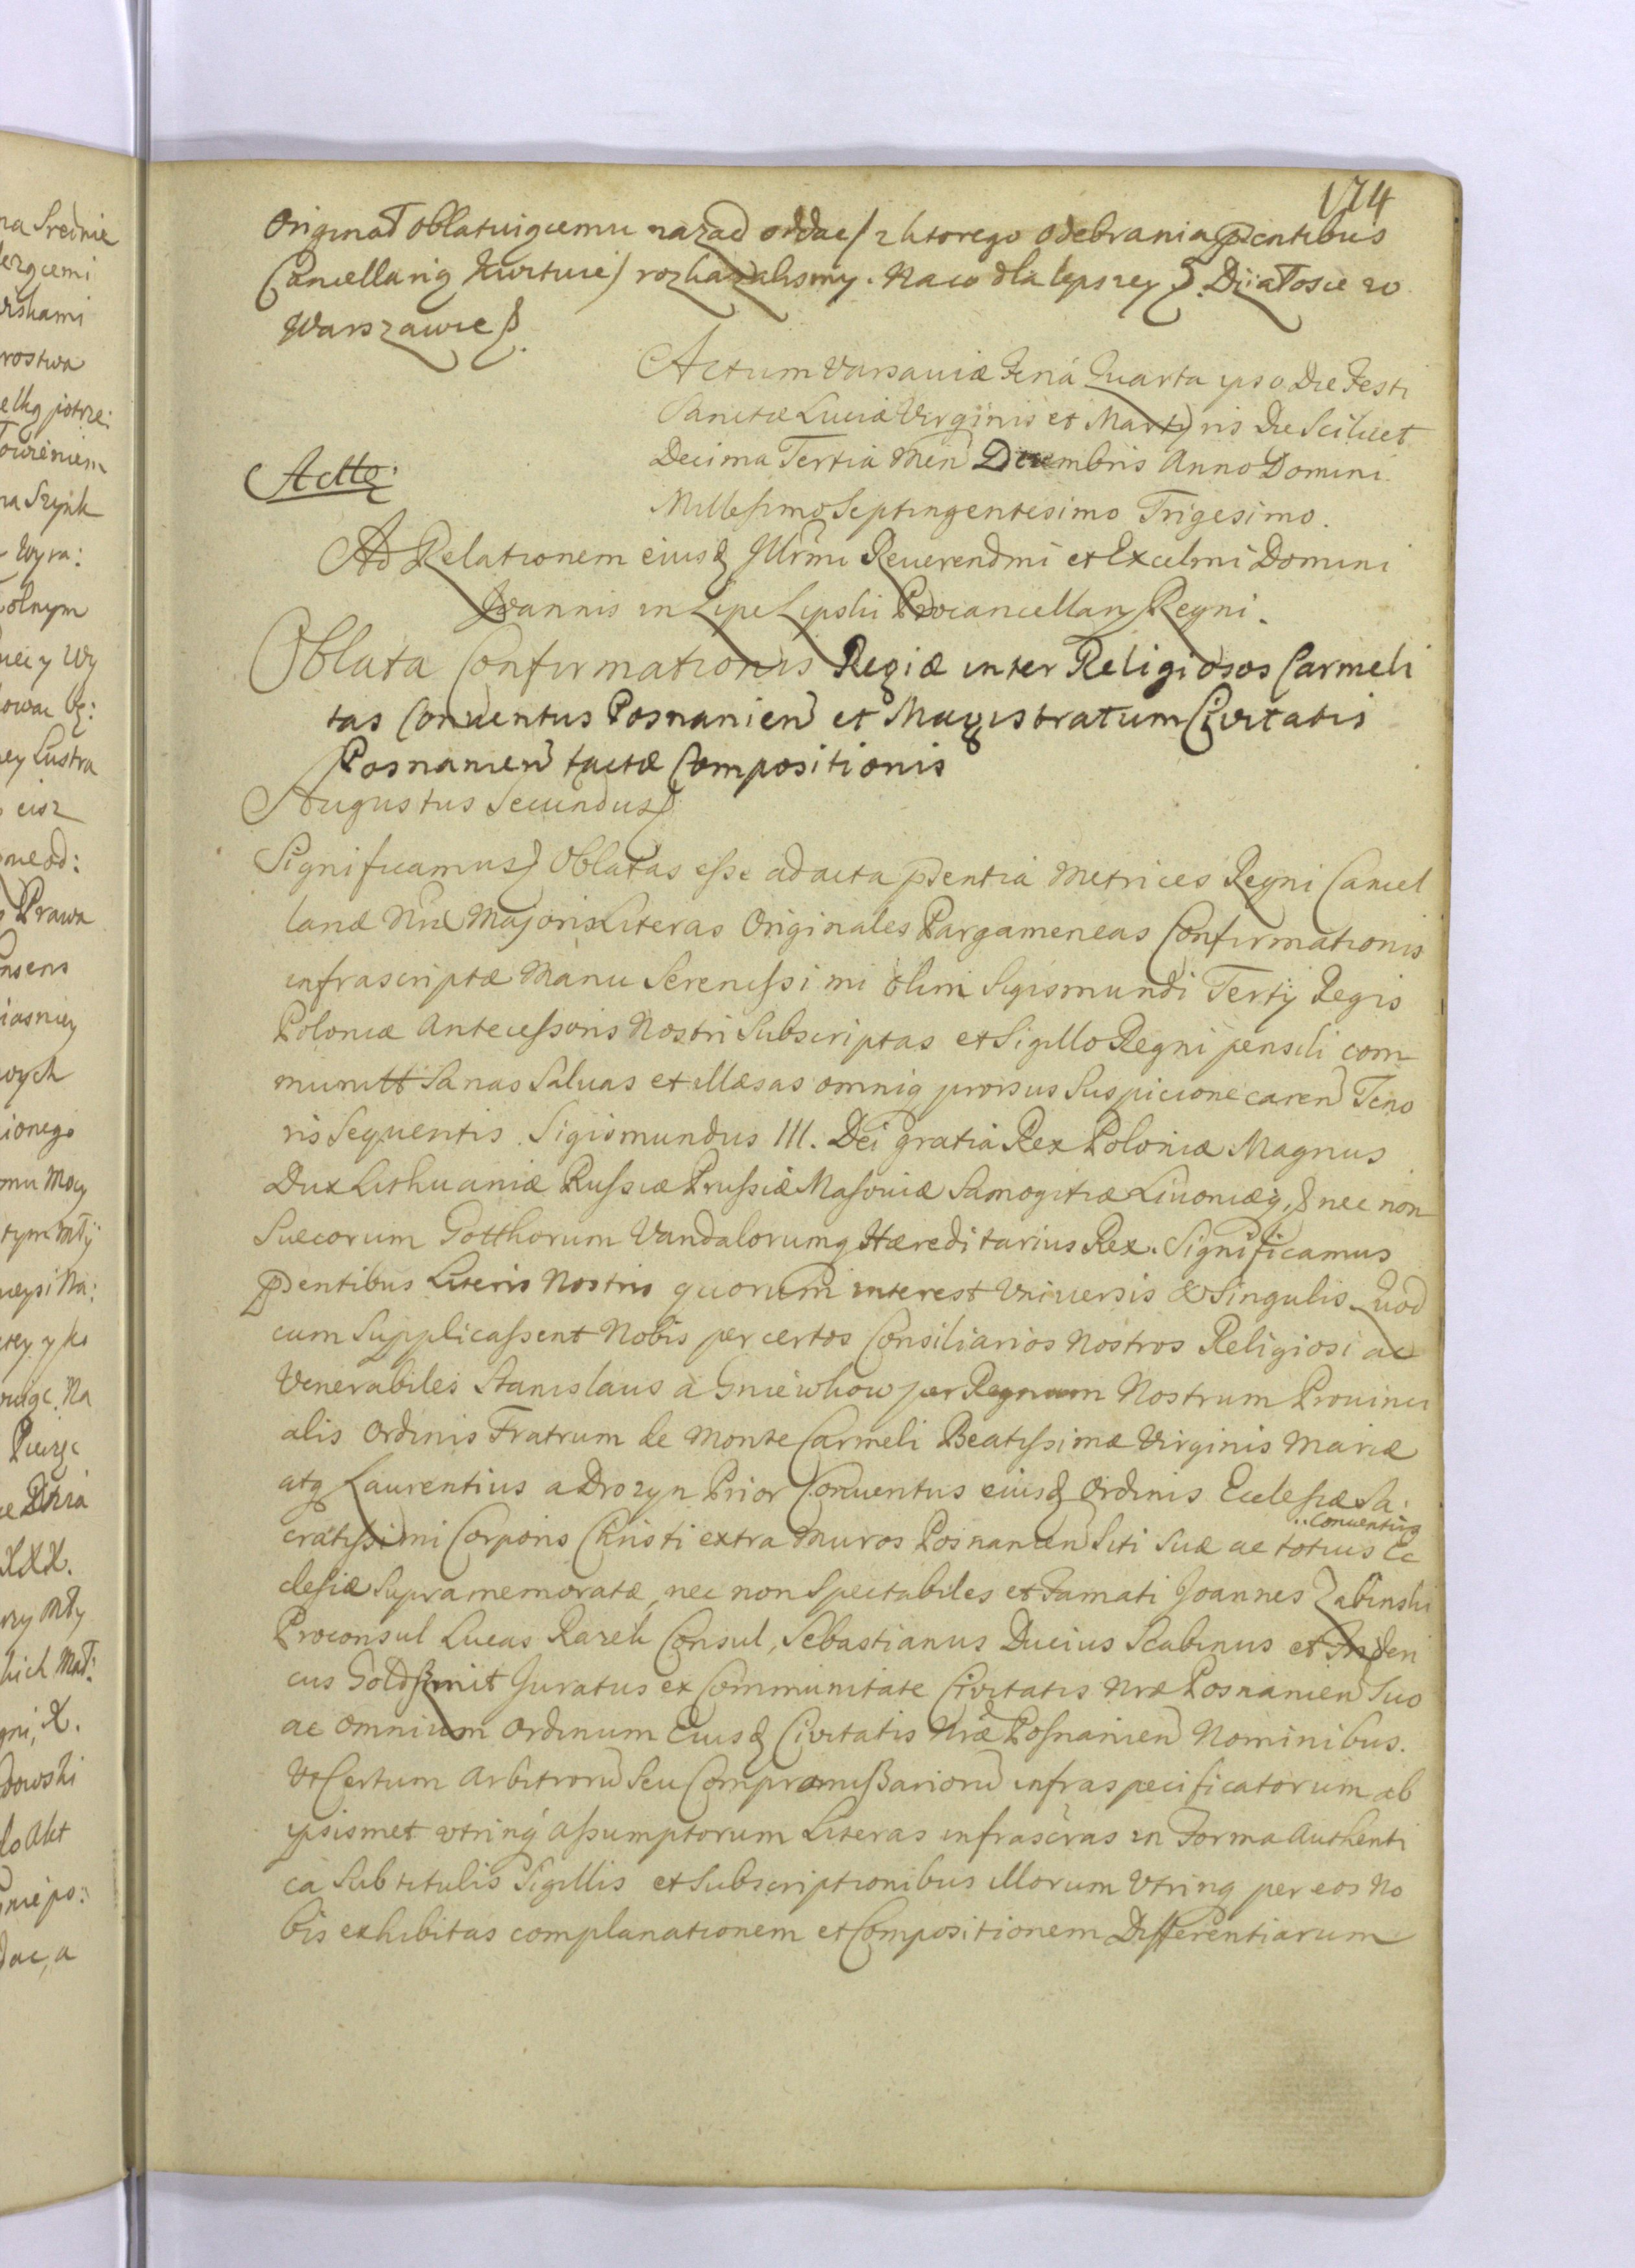 174
Originał oblatuiącemu nazad oddać / z ktorego odebrania pśentibus
Cancellarią kwituie / rozkazalismy. Na co dla lepszey &. Działo sie w
Warszawie &.
Actum Varsaviæ Feriâ Quarta ipso Die Festi
Sanctæ Luciæ Virginis et Martyris Die Scilicet
Decima Tertia Men Decembris Anno Domini
Millesimo Septingentesimo Trigesimo.
Actto
Ad Relationem eiusd Illrmi Reverendmi et Excelmi Domini
Joannis in Lipe Lipski Procancellary Regni.
Oblata Confirmationis Regiæ inter Religiosos Carmeli
tas Conventus Posnanien et Magistratum Civitatis
Posnanien factæ Compositionis
Augustus Secundus &
Significamus & Oblatas esse ad acta pśentia Metrices Regni Cancel
lariæ Nræ Majoris Literas Originales Pargameneas Confirmationis
infrascriptæ Manu Serenissimi olim Sigismundi Tertÿ Regis
Poloniæ Antecessoris Nostri Subscriptas et Sigillo Regni pensili com
munitt Sanas Salvas et illæsas omniq prorsus Suspicione caren Teno
ris Sequentis. Sigismundus III. Dei gratiâ Rex Poloniæ Magnus
Dux Lithuaniæ Russiæ Prussiæ Masoviæ Samogitiæ Livoniæq, & nec non
Suecorum Gotthorum Vandalorumq Hæreditarius Rex. Significamus
pśentibus Literis Nostris quorum interest Universis & Singulis Quod
cum Supplicassent Nobis per certos Consiliarios Nostros Religiosi ac
Venerabiles Stanislaus à Gniewkow per Regnum Nostrum Provinci
alis Ordinis Fratrum de Monte Carmeli Beatissimæ Virginis Mariæ
atq Laurentius a Drozyn Prior Conventus eiusd Ordinis Ecclesiæ Sa:
Conventus
cratissimi Corporis Christi extra Muros Posnanien Siti Suæ ac totius Ec
clesiæ Supramemoratæ, nec non Spectabiles et Famati Joannes Zabinski
Proconsul Lucas Rarek Consul, Sebastianus Ducius Scabinus et Frideri
cus Goldszmit Juratus ex Communitate Civitatis Nræ Posnanien Suo
ac Omnium Ordinum Eiusd Civitatis Nræ Posnanien Nominibus.
Vt Certum Arbitrorũ Seu Compromissariorũ infraspecificatorum ab
ipsismet utrinq assumptorum Literas infrascras in Forma Authenti
ca Sub titulis Sigillis et Subscriptionibus illorum Vtrinq per eos No
bis exhibitas complanationem et Compositionem Differentiarum